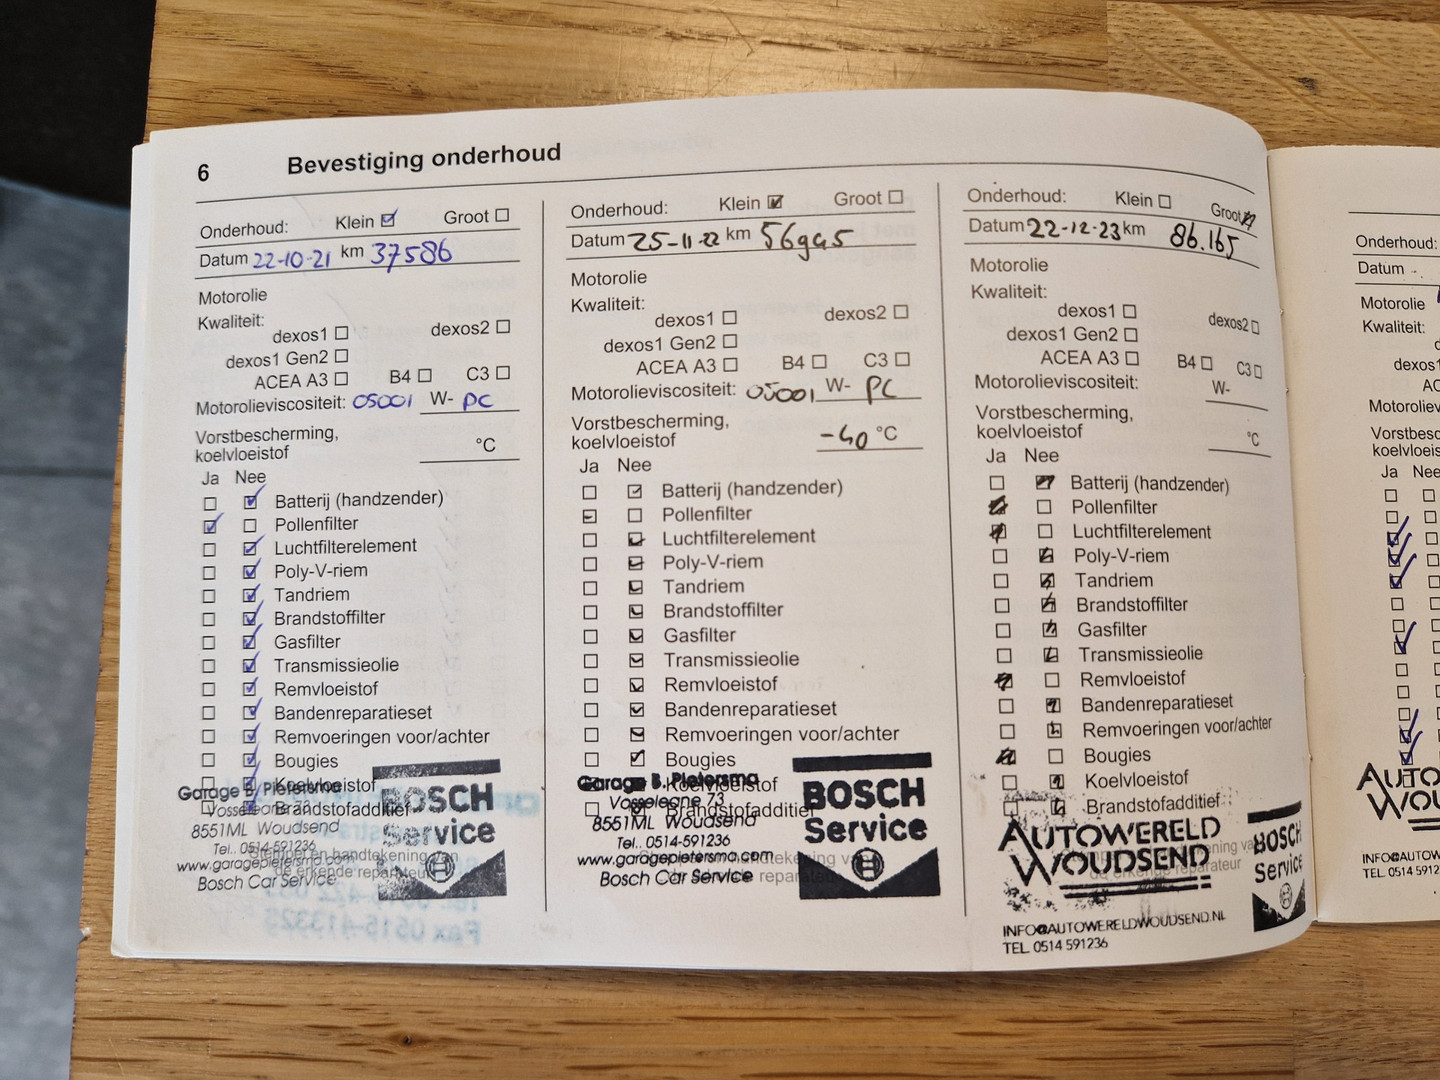 6 Bevestiging onderhoud
Onderhoud: Klein Groot
Datum 22-10-21 km 37586
Motorolie
Kwaliteit:
dexos1 dexos2
dexos1 Gen2
ACEA A3 B4 C3
Motorolieviscositeit: 05001 W- PC
Vorstbescherming,
koelvloeistof °C
Ja Nee
Batterij (handzender)
Pollenfilter
Luchtfilterelement
Poly-V-riem
Tandriem
Brandstoffilter
Gasfilter
Transmissieolie
Remvloeistof
Bandenreparatieset
Remvoeringen voor/achter
Bougies
Koelvloeistof
Brandstofadditief
Stempel en handtekening van
de erkende reparateur
Garage B. Pietersma
Vosseleane 73
8551ML Woudsend
Tel.. 0514-591236
www.garagepietersma.com
Bosch Car Service
BOSCH
Service
Onderhoud: Klein Groot
Datum 25-11-22 km 56945
Motorolie
Kwaliteit:
dexos1 dexos2
dexos1 Gen2
ACEA A3 B4 C3
Motorolieviscositeit: 05001 W- PC
Vorstbescherming,
koelvloeistof -40 °C
Ja Nee
Batterij (handzender)
Pollenfilter
Luchtfilterelement
Poly-V-riem
Tandriem
Brandstoffilter
Gasfilter
Transmissieolie
Remvloeistof
Bandenreparatieset
Remvoeringen voor/achter
Bougies
Koelvloeistof
Brandstofadditief
Stempel en handtekening van
de erkende reparateur
Garage B. Pietersma
Vosseleane 73
8551ML Woudsend
Tel.. 0514-591236
www.garagepietersma.com
Bosch Car Service
BOSCH
Service
Onderhoud: Klein Groot
Datum 22-12-23 km 86.165
Motorolie
Kwaliteit:
dexos1 dexos2
dexos1 Gen2
ACEA A3 B4 C3
Motorolieviscositeit: W-
Vorstbescherming,
koelvloeistof °C
Ja Nee
Batterij (handzender)
Pollenfilter
Luchtfilterelement
Poly-V-riem
Tandriem
Brandstoffilter
Gasfilter
Transmissieolie
Remvloeistof
Bandenreparatieset
Remvoeringen voor/achter
Bougies
Koelvloeistof
Brandstofadditief
de erkende reparateur
AUTOWERELD
WOUDSEND
INFO@AUTOWERELDWOUDSEND.NL
TEL. 0514 591236
BOSCH
Service
Onderhoud:
Datum
Motorolie
Kwaliteit:
Ja Nee
TEL. 0514 591